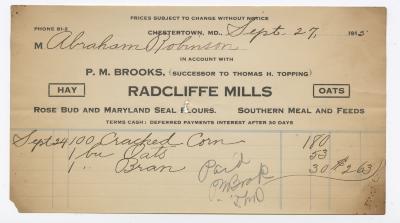 PRICES SUBJECT TO CHANGE WITHOUT NOTICE
PHONE 81-2
CHESTERTOWN, MD., Sept. 27, 1915
M Abraham Robinson
IN ACCOUNT WITH
P. M. BROOKS, (SUCCESSOR TO THOMAS H. TOPPING)
HAY RADCLIFFE MILLS OATS
ROSE BUD AND MARYLAND SEAL FLOURS. SOUTHERN MEAL AND FEEDS
TERMS CASH: DEFERRED PAYMENTS INTEREST AFTER 30 DAYS
Sept 24 100 Cracked Corn 180
1 bu Oats 53
1 " Bran 30 $2.63
Paid
PMBrooks